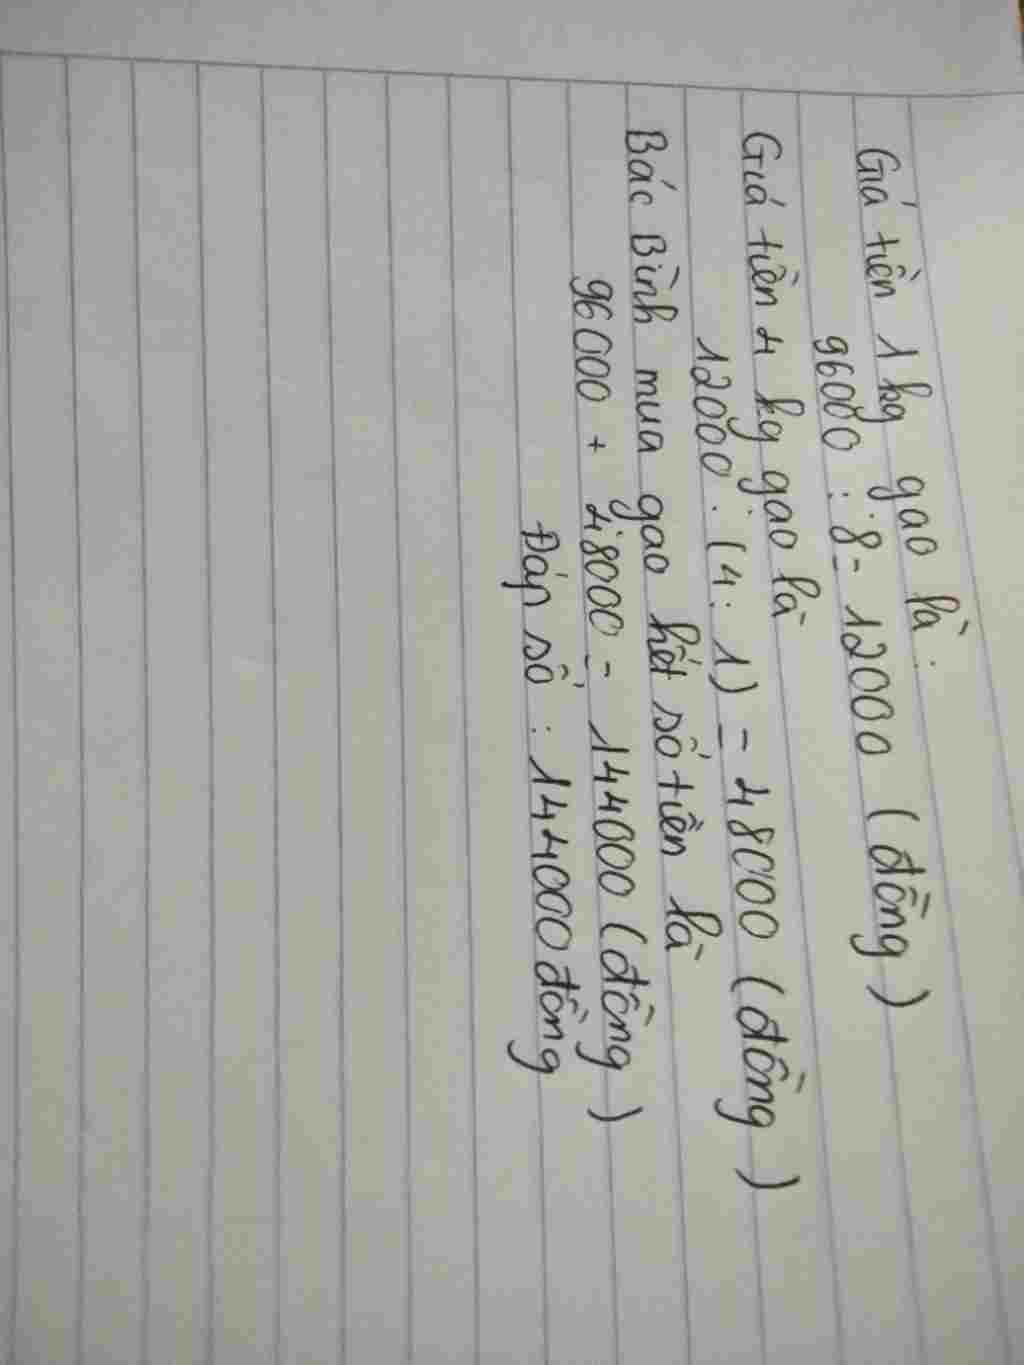 Giá tiền 1 kg gạo là :
96000 : 8 = 12000 (đồng)
Giá tiền 4 kg gạo là
12000 . (4 : 1) = 48000 (đồng)
Bác Bình mua gạo hết số tiền là
96000 + 48000 = 144000 (đồng)
Đáp số : 144000 đồng